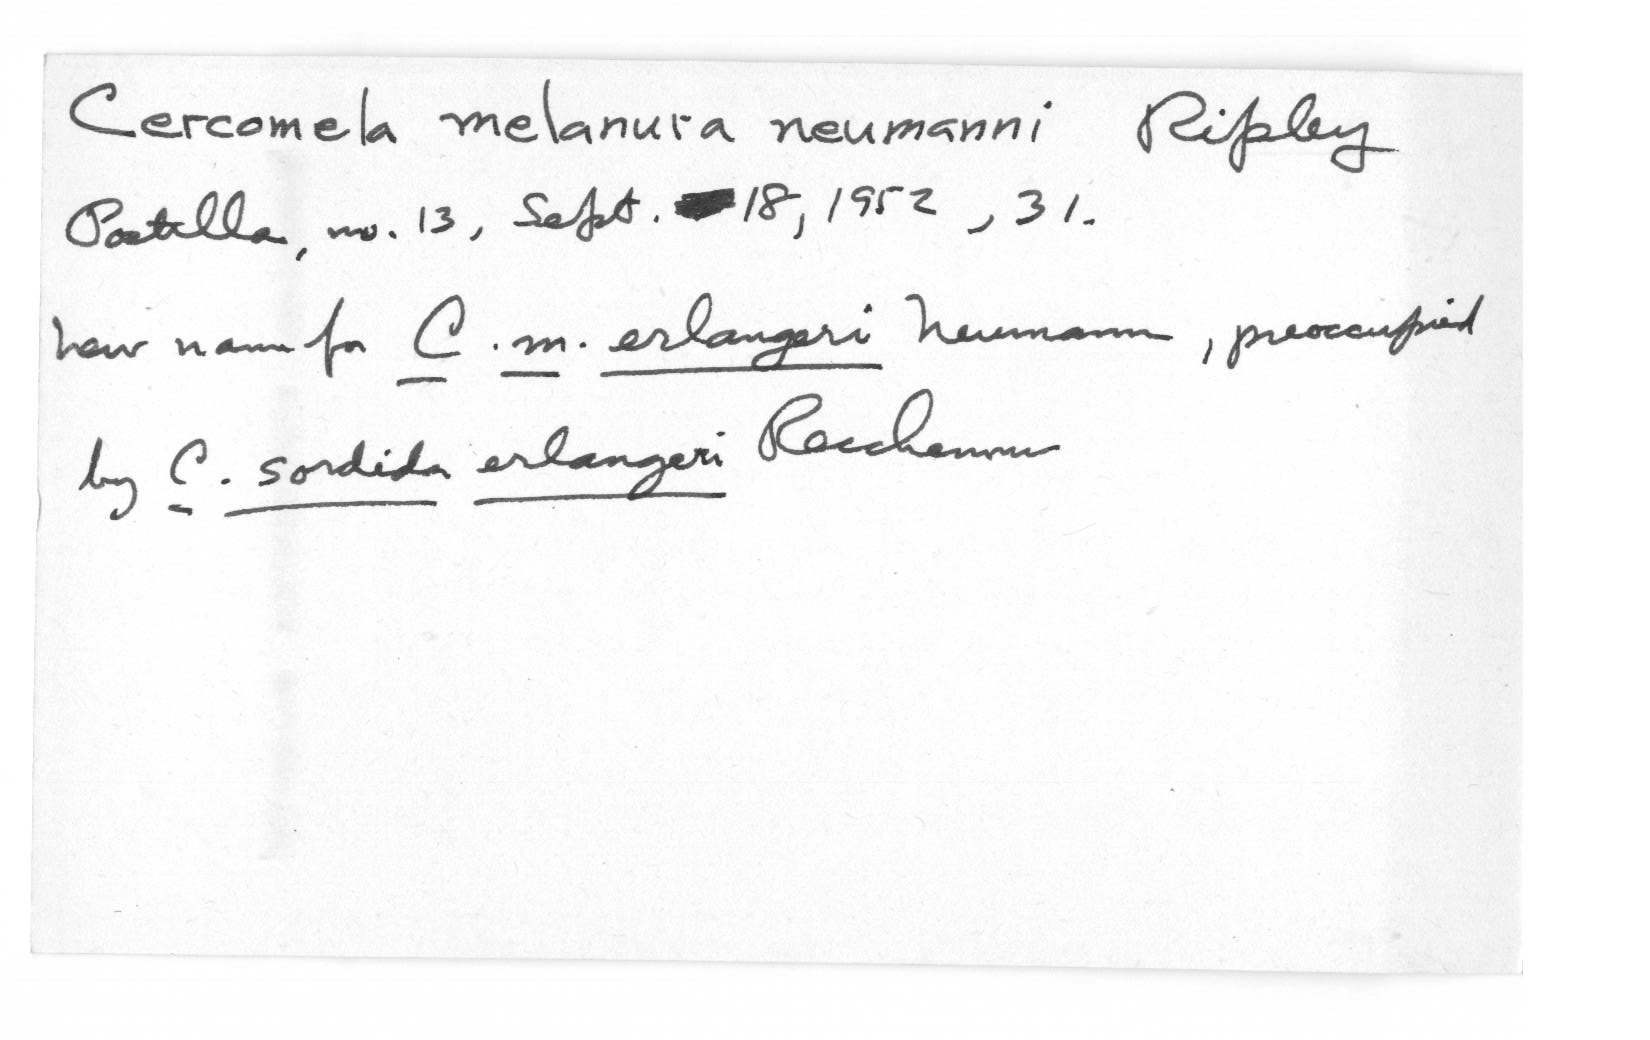 Cercomela melanura neumanni Ripley
Postilla, no. 13, Sept. 18, 1952, 31.
new name for C. m. erlangeri Neumann, preoccupied
by C. sordida erlangeri Reichenow